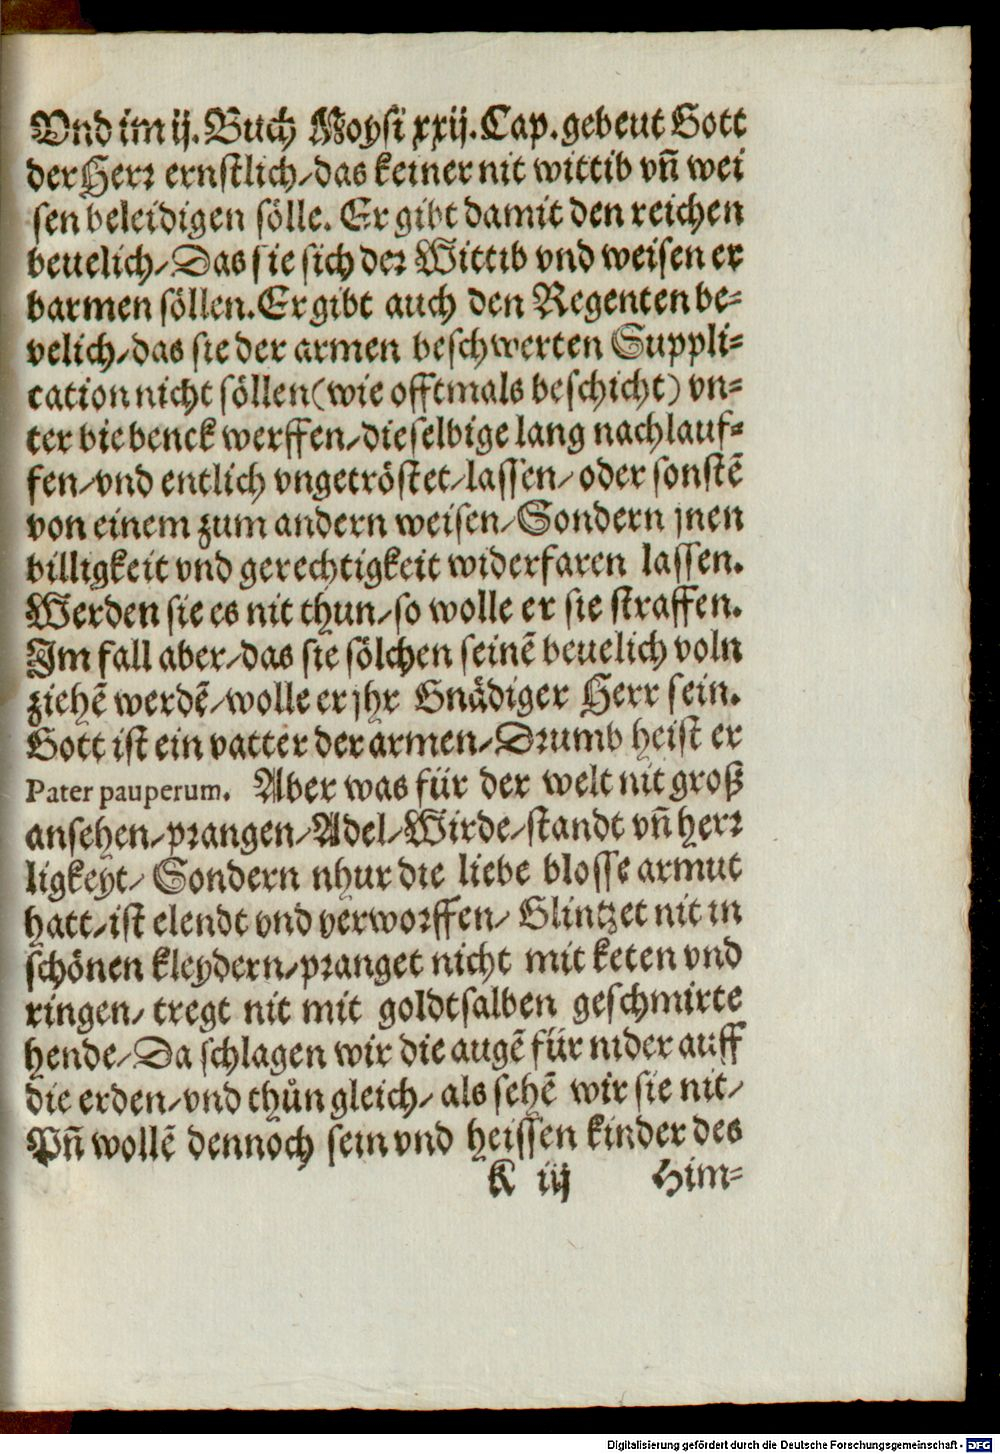 Vnd im ij. Buch Moysi xxij. Cap. gebeut Gott
der Herr ernstlich/ das keiner nit wittib vñ wei
sen beleidigen sölle. Er gibt damit den reichen
beuelich/ Das sie sich der Wittib vnd weisen er
barmen söllen. Er gibt auch den Regenten be=
velich/ das sie der armen beschwerten Suppli=
cation nicht söllen (wie offtmals beschicht) vn=
ter die benck werffen/ dieselbige lang nachlauf=
fen/ vnd entlich vngetröstet/ lassen/ oder sonstẽ
von einem zum andern weisen/ Sondern jnen
billigkeit vnd gerechtigkeit widerfaren lassen.
Werden sie es nit thun/ so wolle er sie straffen.
Im fall aber/ das sie sölchen seinẽ beuelich voln
ziehẽ werdẽ/ wolle er jhr Gnädiger Herr sein.
Gott ist ein vatter der armen/ Drumb heist er
Pater pauperum. Aber was für der welt nit groß
ansehen/ prangen/ Adel/ Wirde/ standt vñ herr
ligkeyt/ Sondern nhur die liebe blosse armut
hatt/ ist elendt vnd verworffen/ Glintzet nit in
schönen kleydern/ pranget nicht mit keten vnd
ringen/ tregt nit mit goldtsalben geschmirte
hende/ Da schlagen wir die augẽ für nider auff
die erden/ vnd thůn gleich/ als sehẽ wir sie nit/
Vñ wollẽ dennoch sein vnd heissen kinder des
K iij Him=
Digitalisierung gefördert durch die Deutsche Forschungsgemeinschaft - DFG